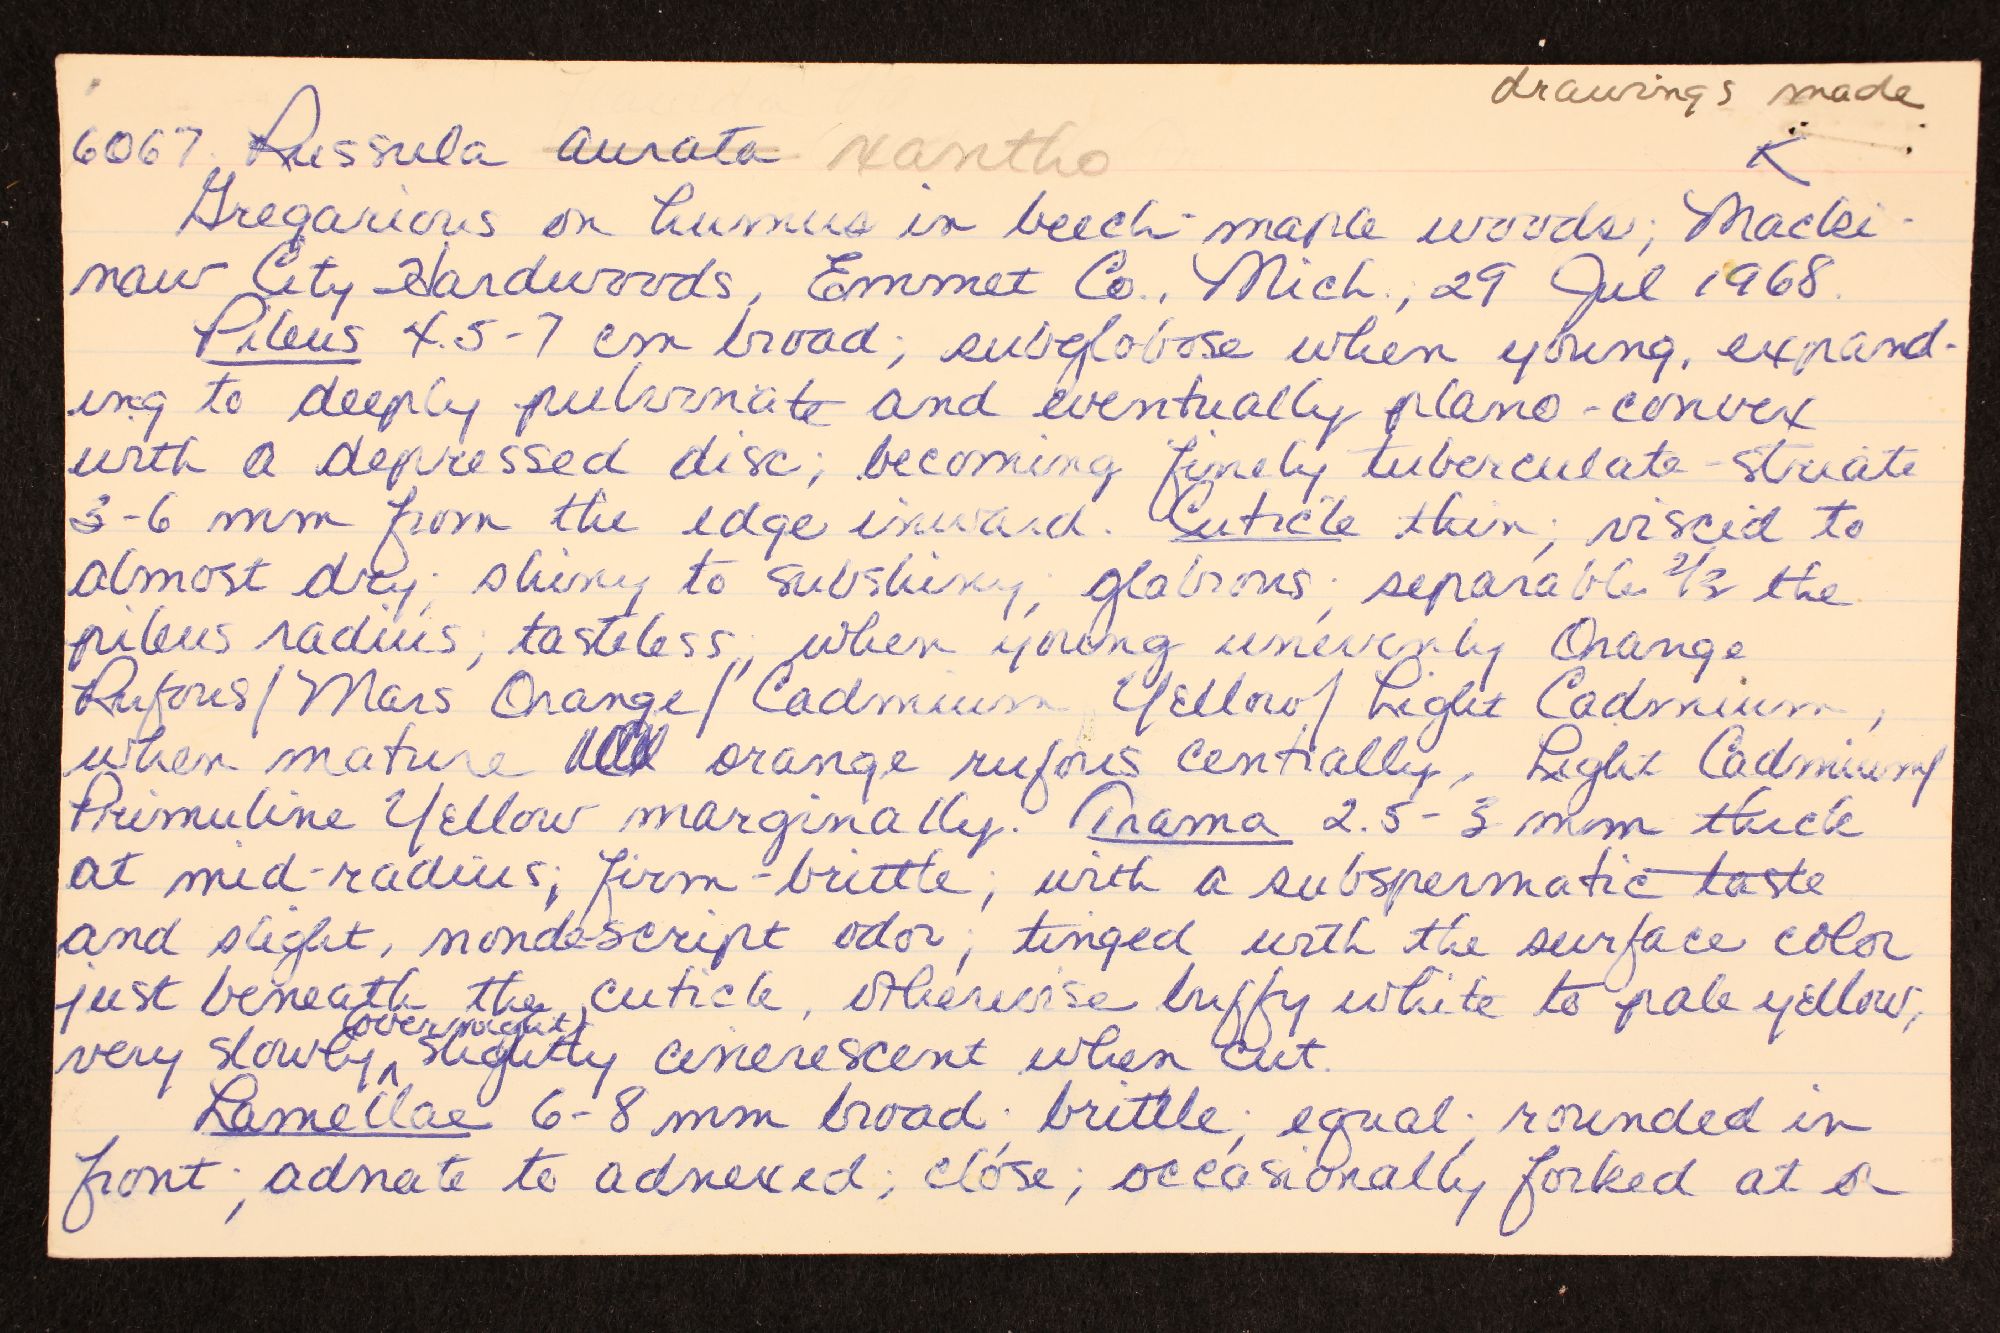 drawings made
6067. Russula aurata xantho K
Gregarious on humus in beech-maple woods; Macki-
naw City Hardwoods, Emmet Co., Mich., 29 Jul 1968.
Pileus 4.5-7 cm broad; subglobose when young, expand-
ing to deeply pulvinate and eventually plano-convex
with a depressed disc; becoming finely tuberculate-striate
3-6 mm from the edge inward. Cuticle thin; viscid to
almost dry; shiny to subshiny; glabrous; separable 2/3 the
pileus radius; tasteless; when young unevenly Orange
Rufous/Mars Orange/Cadmium Yellow/Light Cadmium,
when mature orange rufous centrally, Light Cadmium/
Primuline Yellow marginally. Trama 2.5-3 mm thick
at mid-radius; firm-brittle; with a subspermatic taste
and slight, nondescript odor; tinged with the surface color
just beneath the cuticle, otherwise buffy white to pale yellow,
(overnight)
very slowly ^ slightly cinerescent when cut.
Lamellae 6-8 mm broad; brittle; equal; rounded in
front; adnate to adnexed; close; occasionally forked at or